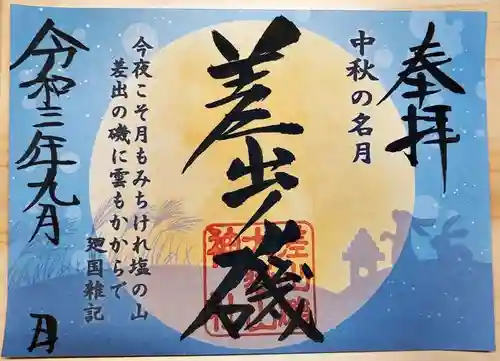 奉拝
中秋の名月
差出ノ磯
今夜こそ月もみちけれ塩の山
差出の磯に雲もかからで
廻国雑記
令和三年九月
日